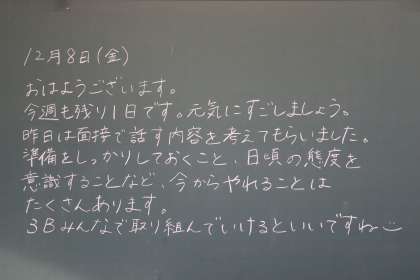 12月8日(金)
おはようございます。
今週も残り1日です。元気にすごしましょう。
昨日は面接で話す内容を考えてもらいました。
準備をしっかりしておくこと、日頃の態度を
意識することなど、今からやれることは
たくさんあります。
3Bみんなで取り組んでいけるといいですね